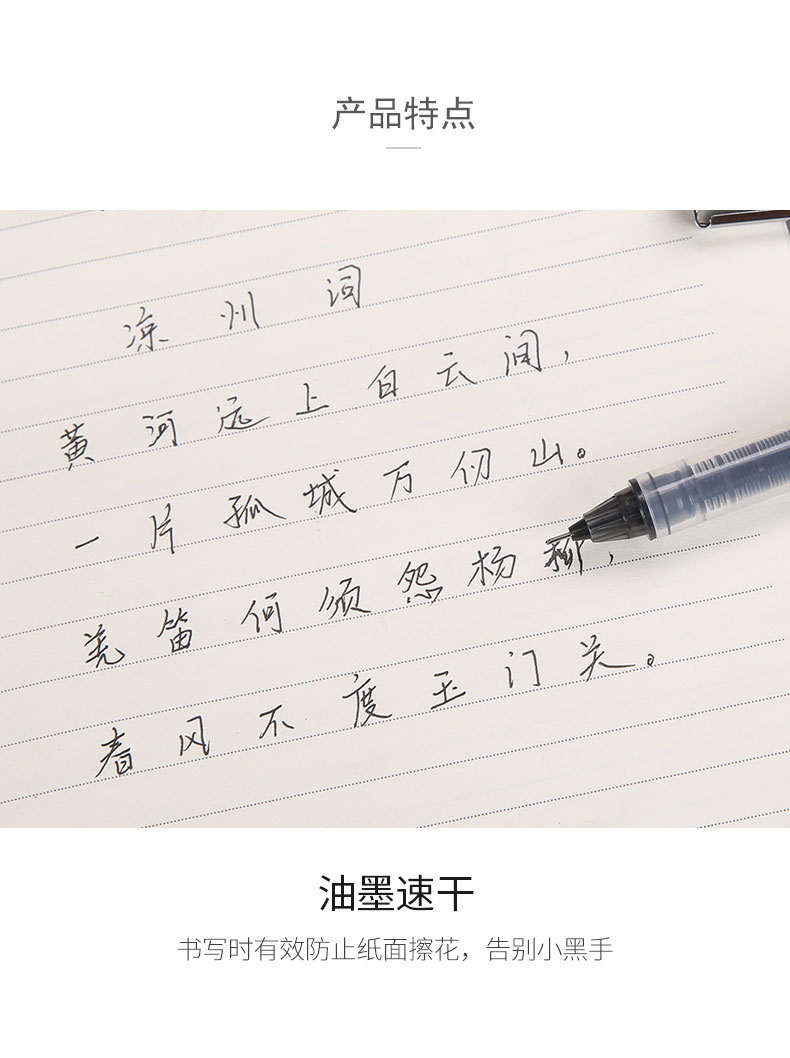 产品特点
凉州词
黄河远上白云间，
一片孤城万仞山。
羌笛何须怨杨柳，
春风不度玉门关。
油墨速干
书写时有效防止纸面擦花，告别小黑手